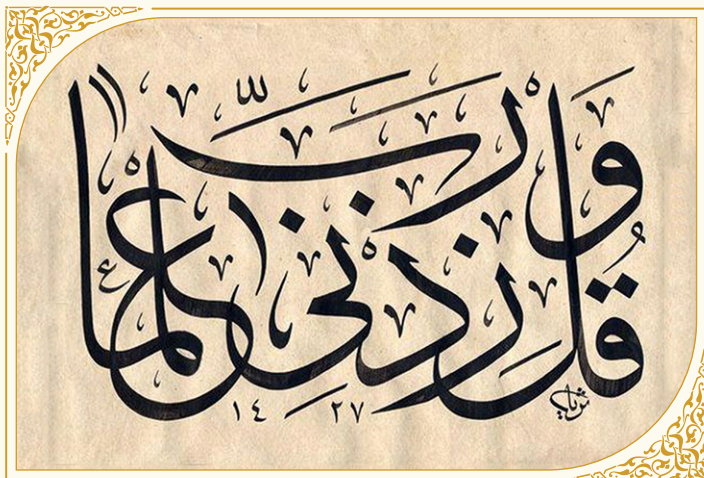 وَقُل رَّبِّ زِدْنِي عِلْمًا
١٤٢٧